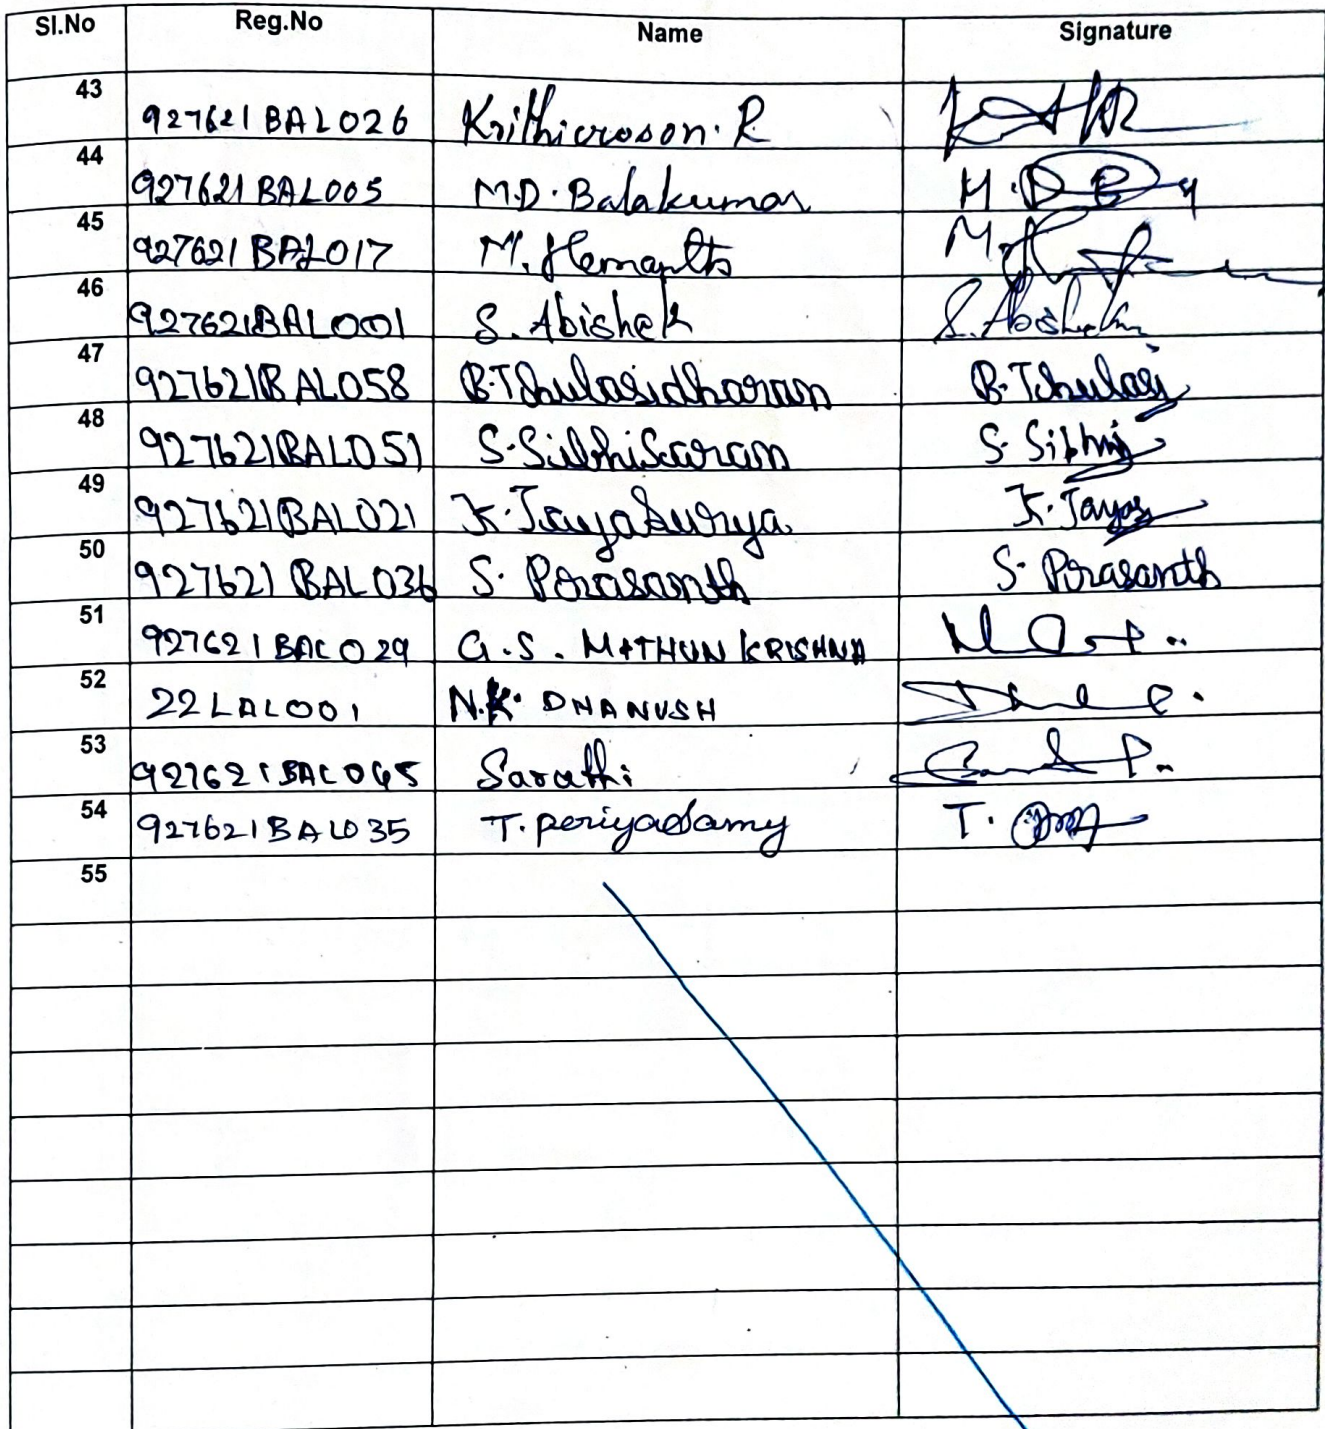 Sl.No Reg.No Name Signature
43 927621BAL026 Krithicroson. R
44 927621BAL005 M.D. Balakumar M.D
45 927621BAL017 M. Hemanth M.
46 927621BAL001 S. Abishek S. Abishek
47 927621BAL058 B.Thulasidharan B.Thulasi
48 927621BAL051 S.SibhiSaran S. Sibhi
49 927621BAL021 K.JayaSurya K.Jaya
50 927621BAL036 S. Prasanth S. Prasanth
51 927621BAL029 G.S. MITHUN KRISHNA
52 22LAL001 N.K. DHANUSH
53 927621BAL045 Sarathi
54 927621BAL035 T. periyaSamy T.
55